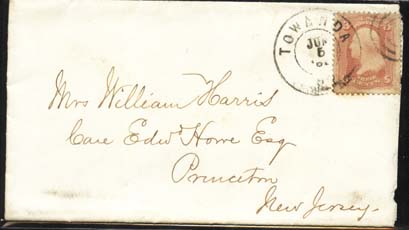 TOWANDA
JUN
5
Mrs William Harris
Care Edwd Howe Esq
Princeton
New Jersey.